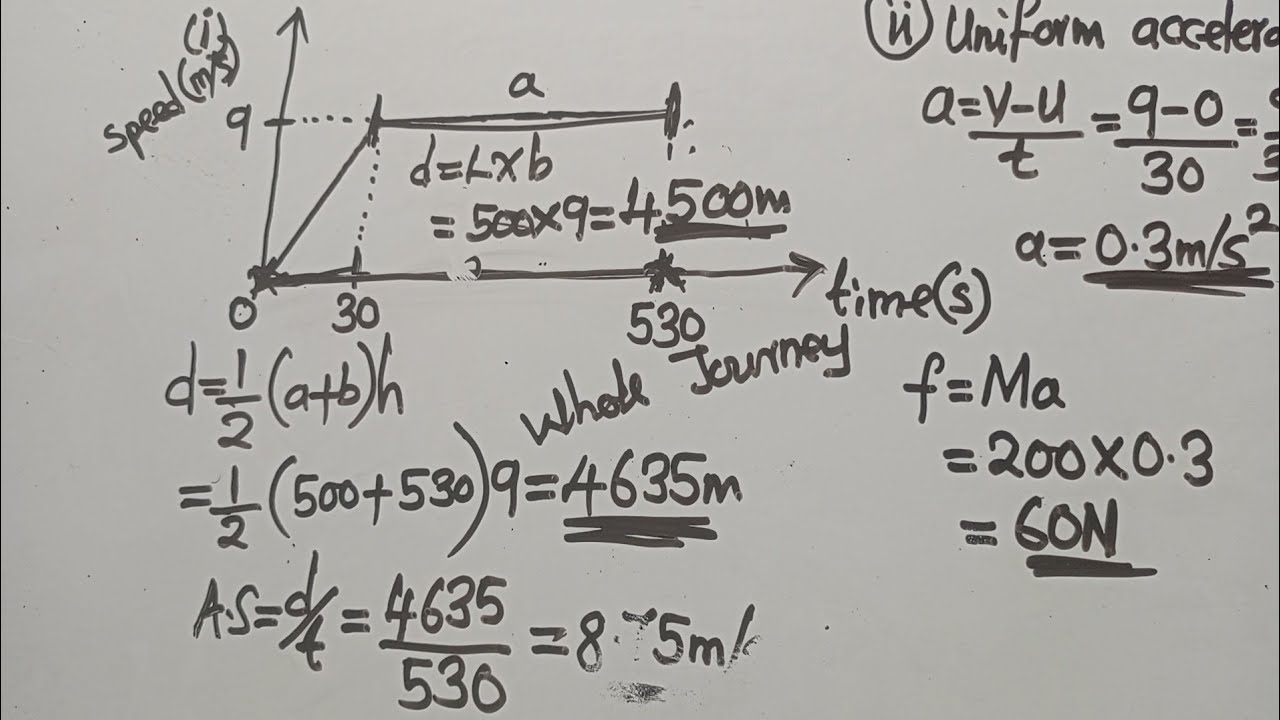 (i)
Speed (m/s)
a
9
d=L×b
= 500×9=4,500m
0
30
530
time(s)
d=1/2(a+b)h
Whole Journey
=1/2(500+530)9=4635m
A.S=d/t=4635/530=8.75m/
(ii) Uniform accelera
a=V-U/t=9-0/30=
a=0.3m/s²
f=Ma
=200×0.3
=60N